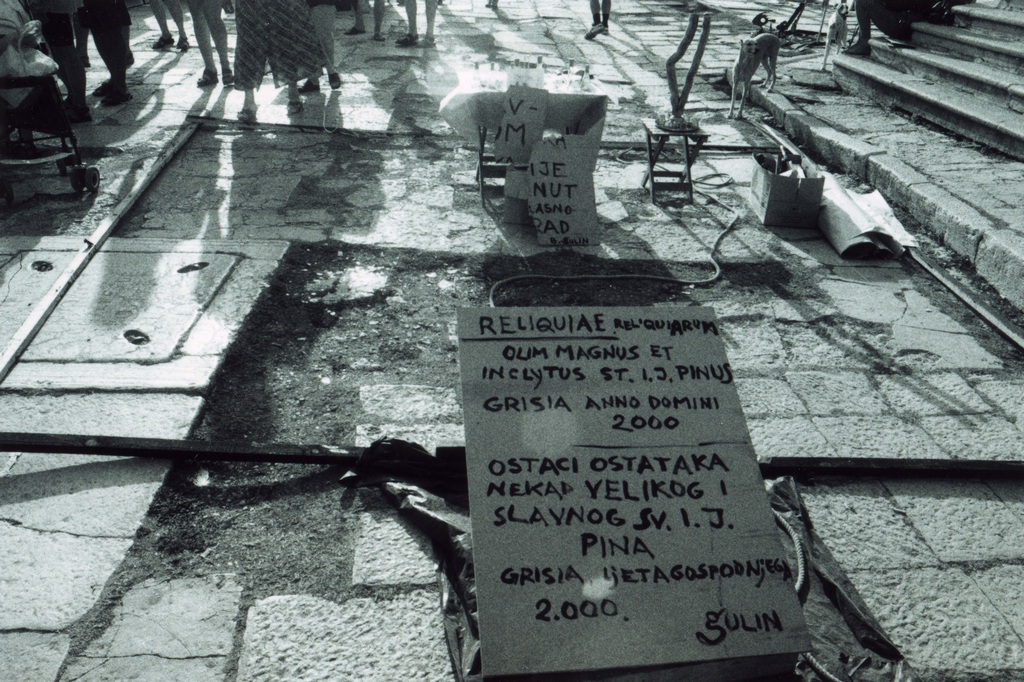 V-
M
IJE
NUT
ASNO
RAD
GULIN
RELIQUIAE REL'QUIARUM
OLIM MAGNUS ET
INCLYTUS ST. I.J. PINUS
GRISIA ANNO DOMINI
2000
OSTACI OSTATAKA
NEKAD VELIKOG I
SLAVNOG SV. I.J.
PINA
GRISIA LJETA GOSPODNJEGA
2.000.
GULIN